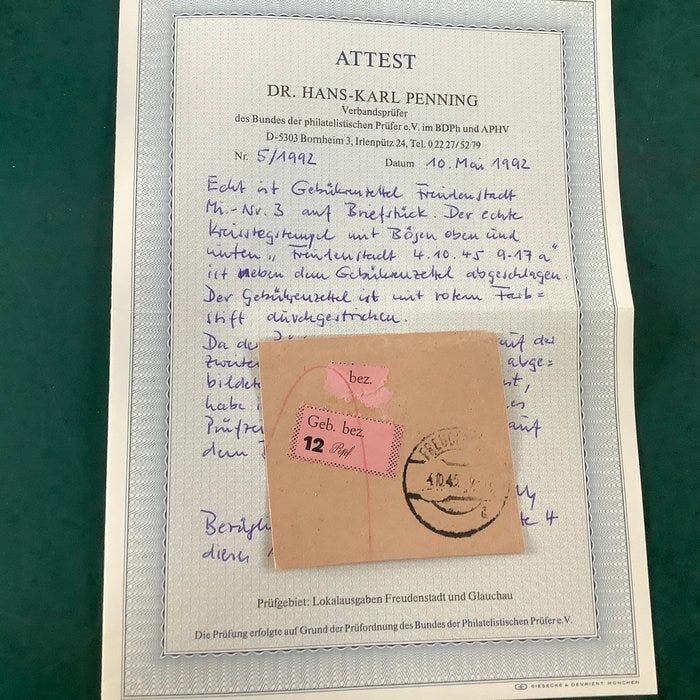 ATTEST
DR. HANS-KARL PENNING
Verbandsprüfer
des Bundes der philatelistischen Prüfer e.V. im BDPh und APHV
D-5303 Bornheim 3, Irlenpütz 24, Tel. 0 22 27/52 79
Nr. 5/1992 Datum 10. Mai 1992
Echt ist Gebührenzettel Freudenstadt
Mi.-Nr. 3 auf Briefstück. Der echte
Kreisstegstempel mit Bögen oben und
unten „Freudenstadt 4.10.45 9-17 a“
ist neben dem Gebührenzettel abgeschlagen.
Der Gebührenzettel ist mit rotem Farb=
stift durchgestrichen.
Da der auf der
zweiten abge=
bildet
habe
auf
dem
4
diese
bez.
Geb. bez.
12 Rpf
4.10.45
a
Prüfgebiet: Lokalausgaben Freudenstadt und Glauchau
Die Prüfung erfolgte auf Grund der Prüfordnung des Bundes der Philatelistischen Prüfer e.V.
GIESECKE & DEVRIENT MÜNCHEN